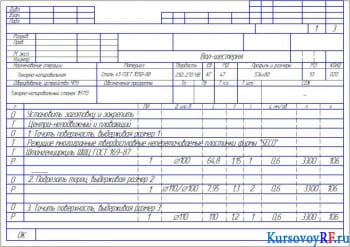 Дубл.
Взам.
Подл.
1 3
Разраб
Пров.
Н. экз.
Вал-шестерня
Наименование операции Материал Твердость ЕВ МД Профиль и размеры МЗ КОИД
Токарно-копировальная Сталь 45 ГОСТ 1050-88
Оборудование устройство ЧПУ Обозначение программы СОЖ
Токарно-копировальный станок
О Установить заготовку и закрепить
Т Центра-неподвижный и плавающий
О 1. Точить поверхность, выдерживая размер 1
Т Режущие многогранные твердосплавные неперетачиваемые пластинки фирмы "SECO"
Т Штангенциркуль ШЦЦ ГОСТ 169-87
Р 1 ⌀100 64,8 1,15 1 0,6 3300 106
О 2. Подрезать торец, выдерживая размер 2
Р 1 ⌀110/⌀100 7,95 1,3 2 0,6 3300 106
О 3. Точить поверхность, выдерживая размер 3
Р 1 ⌀110 110 1,2 1 0,6 3300 106
ОК
KursovoyRF.ru